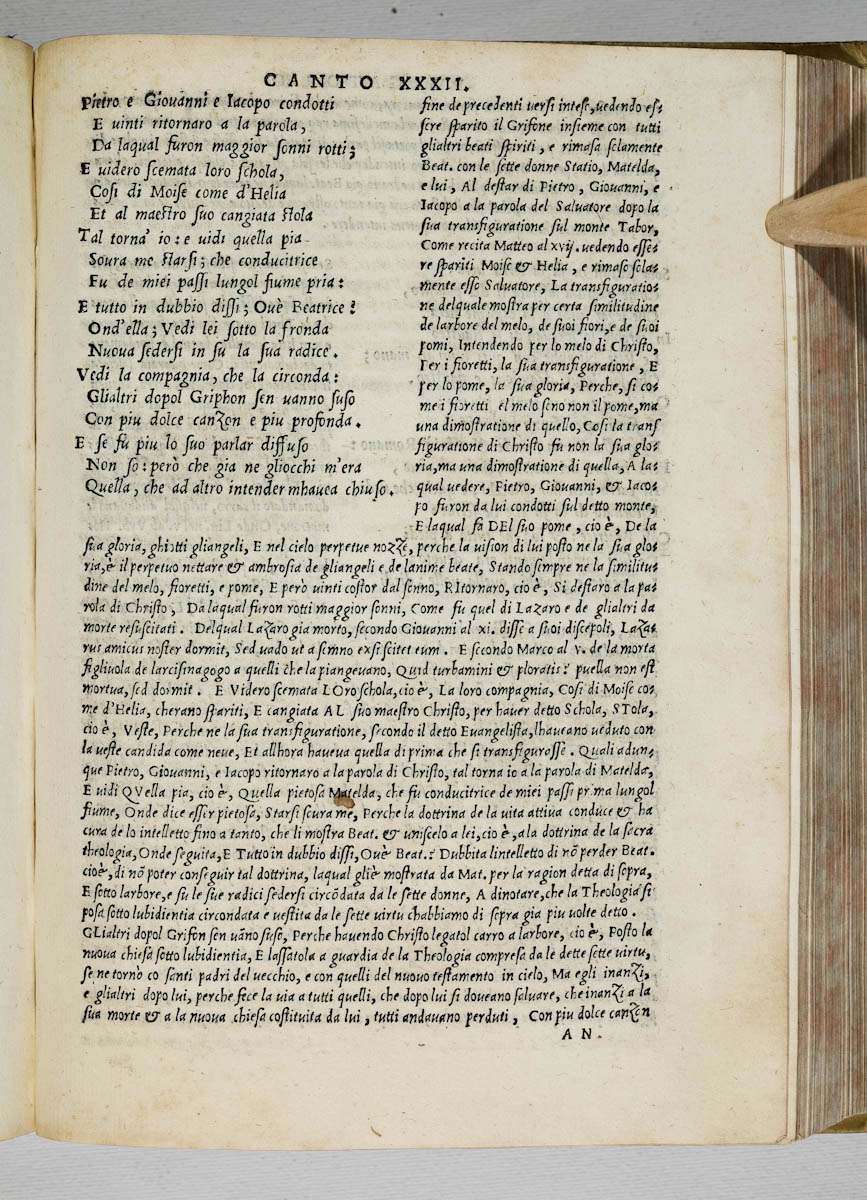 CANTO XXXII.
Pietro e Giouanni e Iacopo condotti
E uinti ritornaro a la parola,
Da laqual furon maggior sonni rotti;
E uidero scemata loro schola,
Cosi di Moise come d'Helia
Et al maestro suo cangiata stola
Tal torna' io: e uidi quella pia
Soura me starsi; che conducitrice
Fu de miei passi lungol fiume pria:
E tutto in dubbio dissi; Ouè Beatrice?
Ond'ella; Vedi lei sotto la fronda
Nuoua sedersi in su la sua radice.
Vedi la compagnia, che la circonda:
Glialtri dopol Griphon sen uanno suso
Con piu dolce canzon e piu profonda.
E se fu piu lo suo parlar diffuso
Non so: però che gia ne gliocchi m'era
Quella, che ad altro intender mhauea chiuso.
fine de precedenti uersi intese, uedendo es=
sere sparito il Grifone insieme con tutti
glialtri beati spiriti, e rimasa solamente
Beat. con le sette donne Statio, Matelda,
e lui, Al destar di Pietro, Giouanni, e
Iacopo a la parola del Saluatore dopo la
sua transfiguratione sul monte Tabor,
Come recita Matteo al xvij. uedendo esse=
re spariti Moise & Helia, e rimase sola=
mente esso Saluatore, La transfiguratio=
ne delquale mostra per certa similitudine
de larbore del melo, de suoi fiori, e de suoi
pomi, Intendendo per lo melo di Christo,
Per i fioretti, la sua transfiguratione, E
per lo pome, la sua gloria, Perche, si co=
me i fioretti del melo sono non il pome, ma
una dimostratione di quello, Cosi la trans
figuratione di Christo fu non la sua glo=
ria, ma una dimostratione di quella, A la=
qual uedere, Pietro, Giouanni, & Iaco=
po furon da lui condotti sul detto monte,
E laqual fa DEl suo pome, cio è, De la
sua gloria, ghiotti gliangeli, E nel cielo perpetue nozze, perche la uision di lui posto ne la sua glo=
ria, è il perpetuo nettare & ambrosia de gliangeli e de lanime beate, Stando sempre ne la similitu=
dine del melo, fioretti, e pome, E però uinti costor dal sonno, RItornaro, cio è, Si destaro a la pa=
rola di Christo, Da laqual furon rotti maggior sonni, Come fu quel di Lazaro e de glialtri da
morte resuscitati. Delqual Lazaro gia morto, secondo Giouanni al xi. disse a suoi discepoli, Laza=
rus amicus noster dormit, Sed uado ut a somno exsuscitet eum. E secondo Marco al v. de la morta
figliuola de larcisinagogo a quelli che la piangeuano, Quid turbamini & ploratis? puella non est
mortua, sed dormit. E Videro scemata LOro schola, cio è, La loro compagnia, Cosi di Moise co=
me d'Helia, cherano spariti, E cangiata AL suo maestro Christo, per hauer detto Schola, STola,
cio è, Veste, Perche ne la sua transfiguratione, secondo il detto Euangelista, lhaueano ueduto con
la ueste candida come neue, Et allhora haueua quella di prima che si transfigurasse. Quali adun=
que Pietro, Giouanni, e Iacopo ritornaro a la parola di Christo, tal torna io a la parola di Matelda,
E uidi QVella pia, cio è, Quella pietosa Matelda, che fu conducitrice de miei passi prima lungol
fiume, Onde dice esser pietosa, Starsi soura me, Perche la dottrina de la uita attiua conduce & ha
cura de lo intelletto fino a tanto, che li mostra Beat. & uniscelo a lei, cio è, a la dottrina de la sacra
theologia, Onde seguita, E Tutto in dubbio dissi, Ouè Beat.? Dubbita lintelletto di nõ perder Beat.
cioè, di nõ poter conseguir tal dottrina, laqual gliè mostrata da Mat. per la ragion detta di sopra,
E sotto larbore, e su le sue radici sedersi circõdata da le sette donne, A dinotare, che la Theologia si
posa sotto lubidientia circondata e uestita da le sette uirtu chabbiamo di sopra gia piu uolte detto.
GLialtri dopol Grifon sen uãno suso, Perche hauendo Christo legatol carro a larbore, cio è, Posto la
nuoua chiesa sotto lubidientia, E lassatola a guardia de la Theologia compresa da le dette sette uirtu,
se ne tornò co santi padri del uecchio, e con quelli del nuouo testamento in cielo, Ma egli inanzi,
e glialtri dopo lui, perche fece la uia a tutti quelli, che dopo lui si doueano saluare, che inanzi a la
sua morte & a la nuoua chiesa costituita da lui, tutti andauano perduti, Con piu dolce canzon
AN.